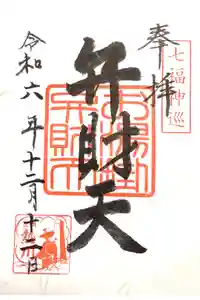 奉拝
七福神巡
弁財天
令和六年十二月十二日